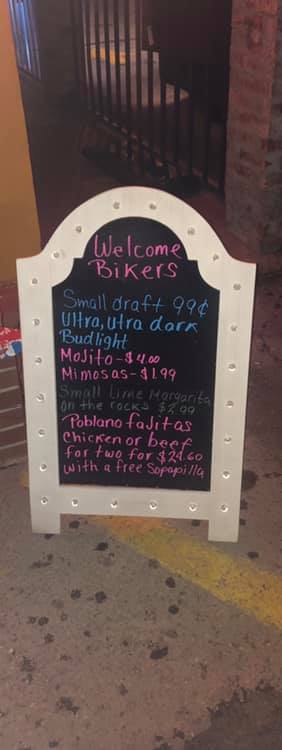 Welcome
Bikers
Small draft 99¢
Ultra, utra dark
Budlight
Mojito-$4.00
Mimosas-$1.99
Small Lime Margarita
on the rocks $2.99
Poblano fajitas
Chicken or beef
for two for $24.60
with a free Sopapilla